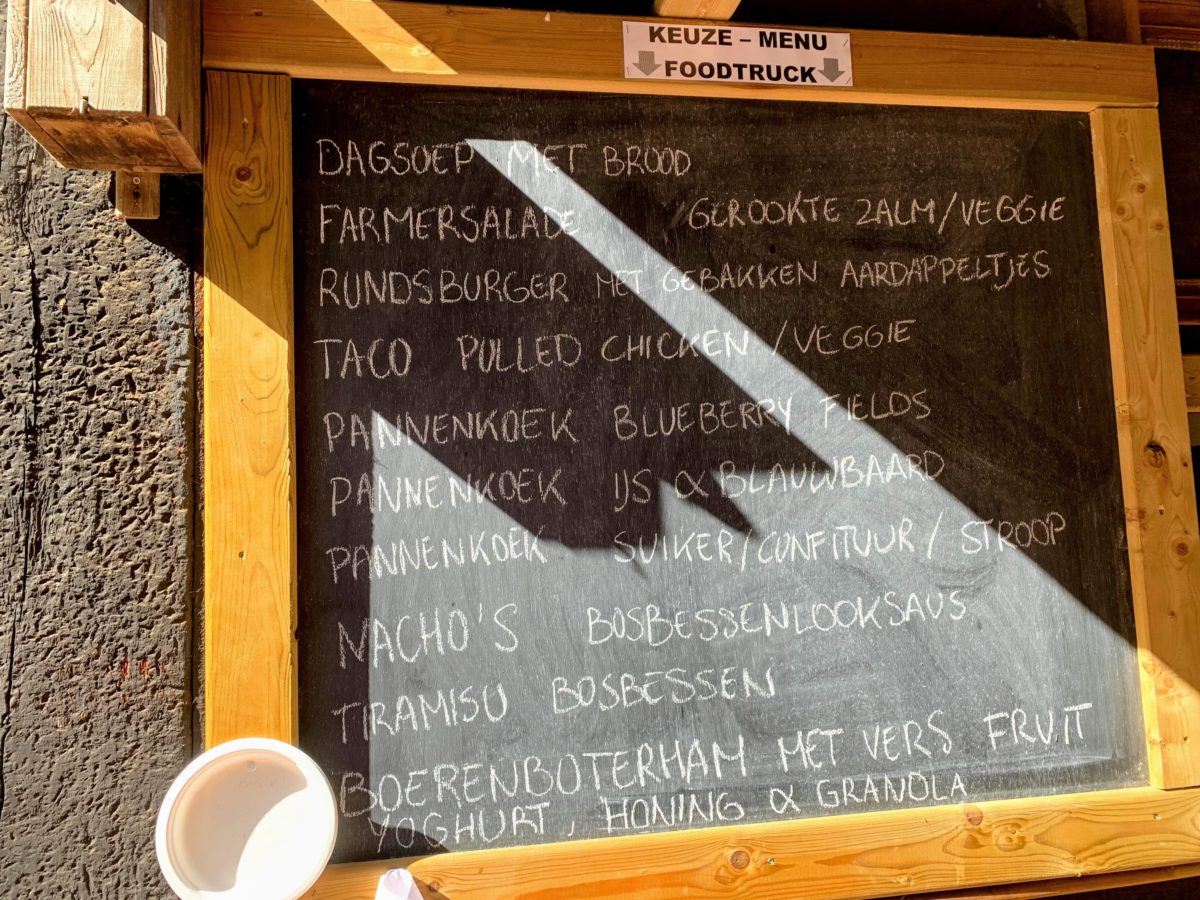 KEUZE – MENU
FOODTRUCK
DAGSOEP MET BROOD
FARMERSALADE GEROOKTE ZALM/VEGGIE
RUNDSBURGER MET GEBAKKEN AARDAPPELTJES
TACO PULLED CHICKEN /VEGGIE
PANNENKOEK BLUEBERRY FIELDS
PANNENKOEK IJS & BLAUWBAARD
PANNENKOEK SUIKER/CONFITUUR/ STROOP
NACHO'S BOSBESSENLOOKSAUS
TIRAMISU BOSBESSEN
BOERENBOTERHAM MET VERS FRUIT
YOGHURT, HONING & GRANOLA